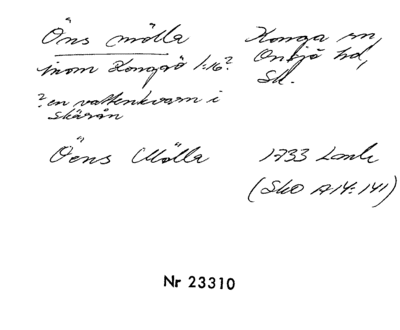 Öns mölla
Konga sn,
inom Kongaö 1:16?
Onsjö hd,
Sk.
? en vattenkvarn i
Skärån
Öens Mölla
1733 Lantm
(Sko A14:141)
Nr 23310